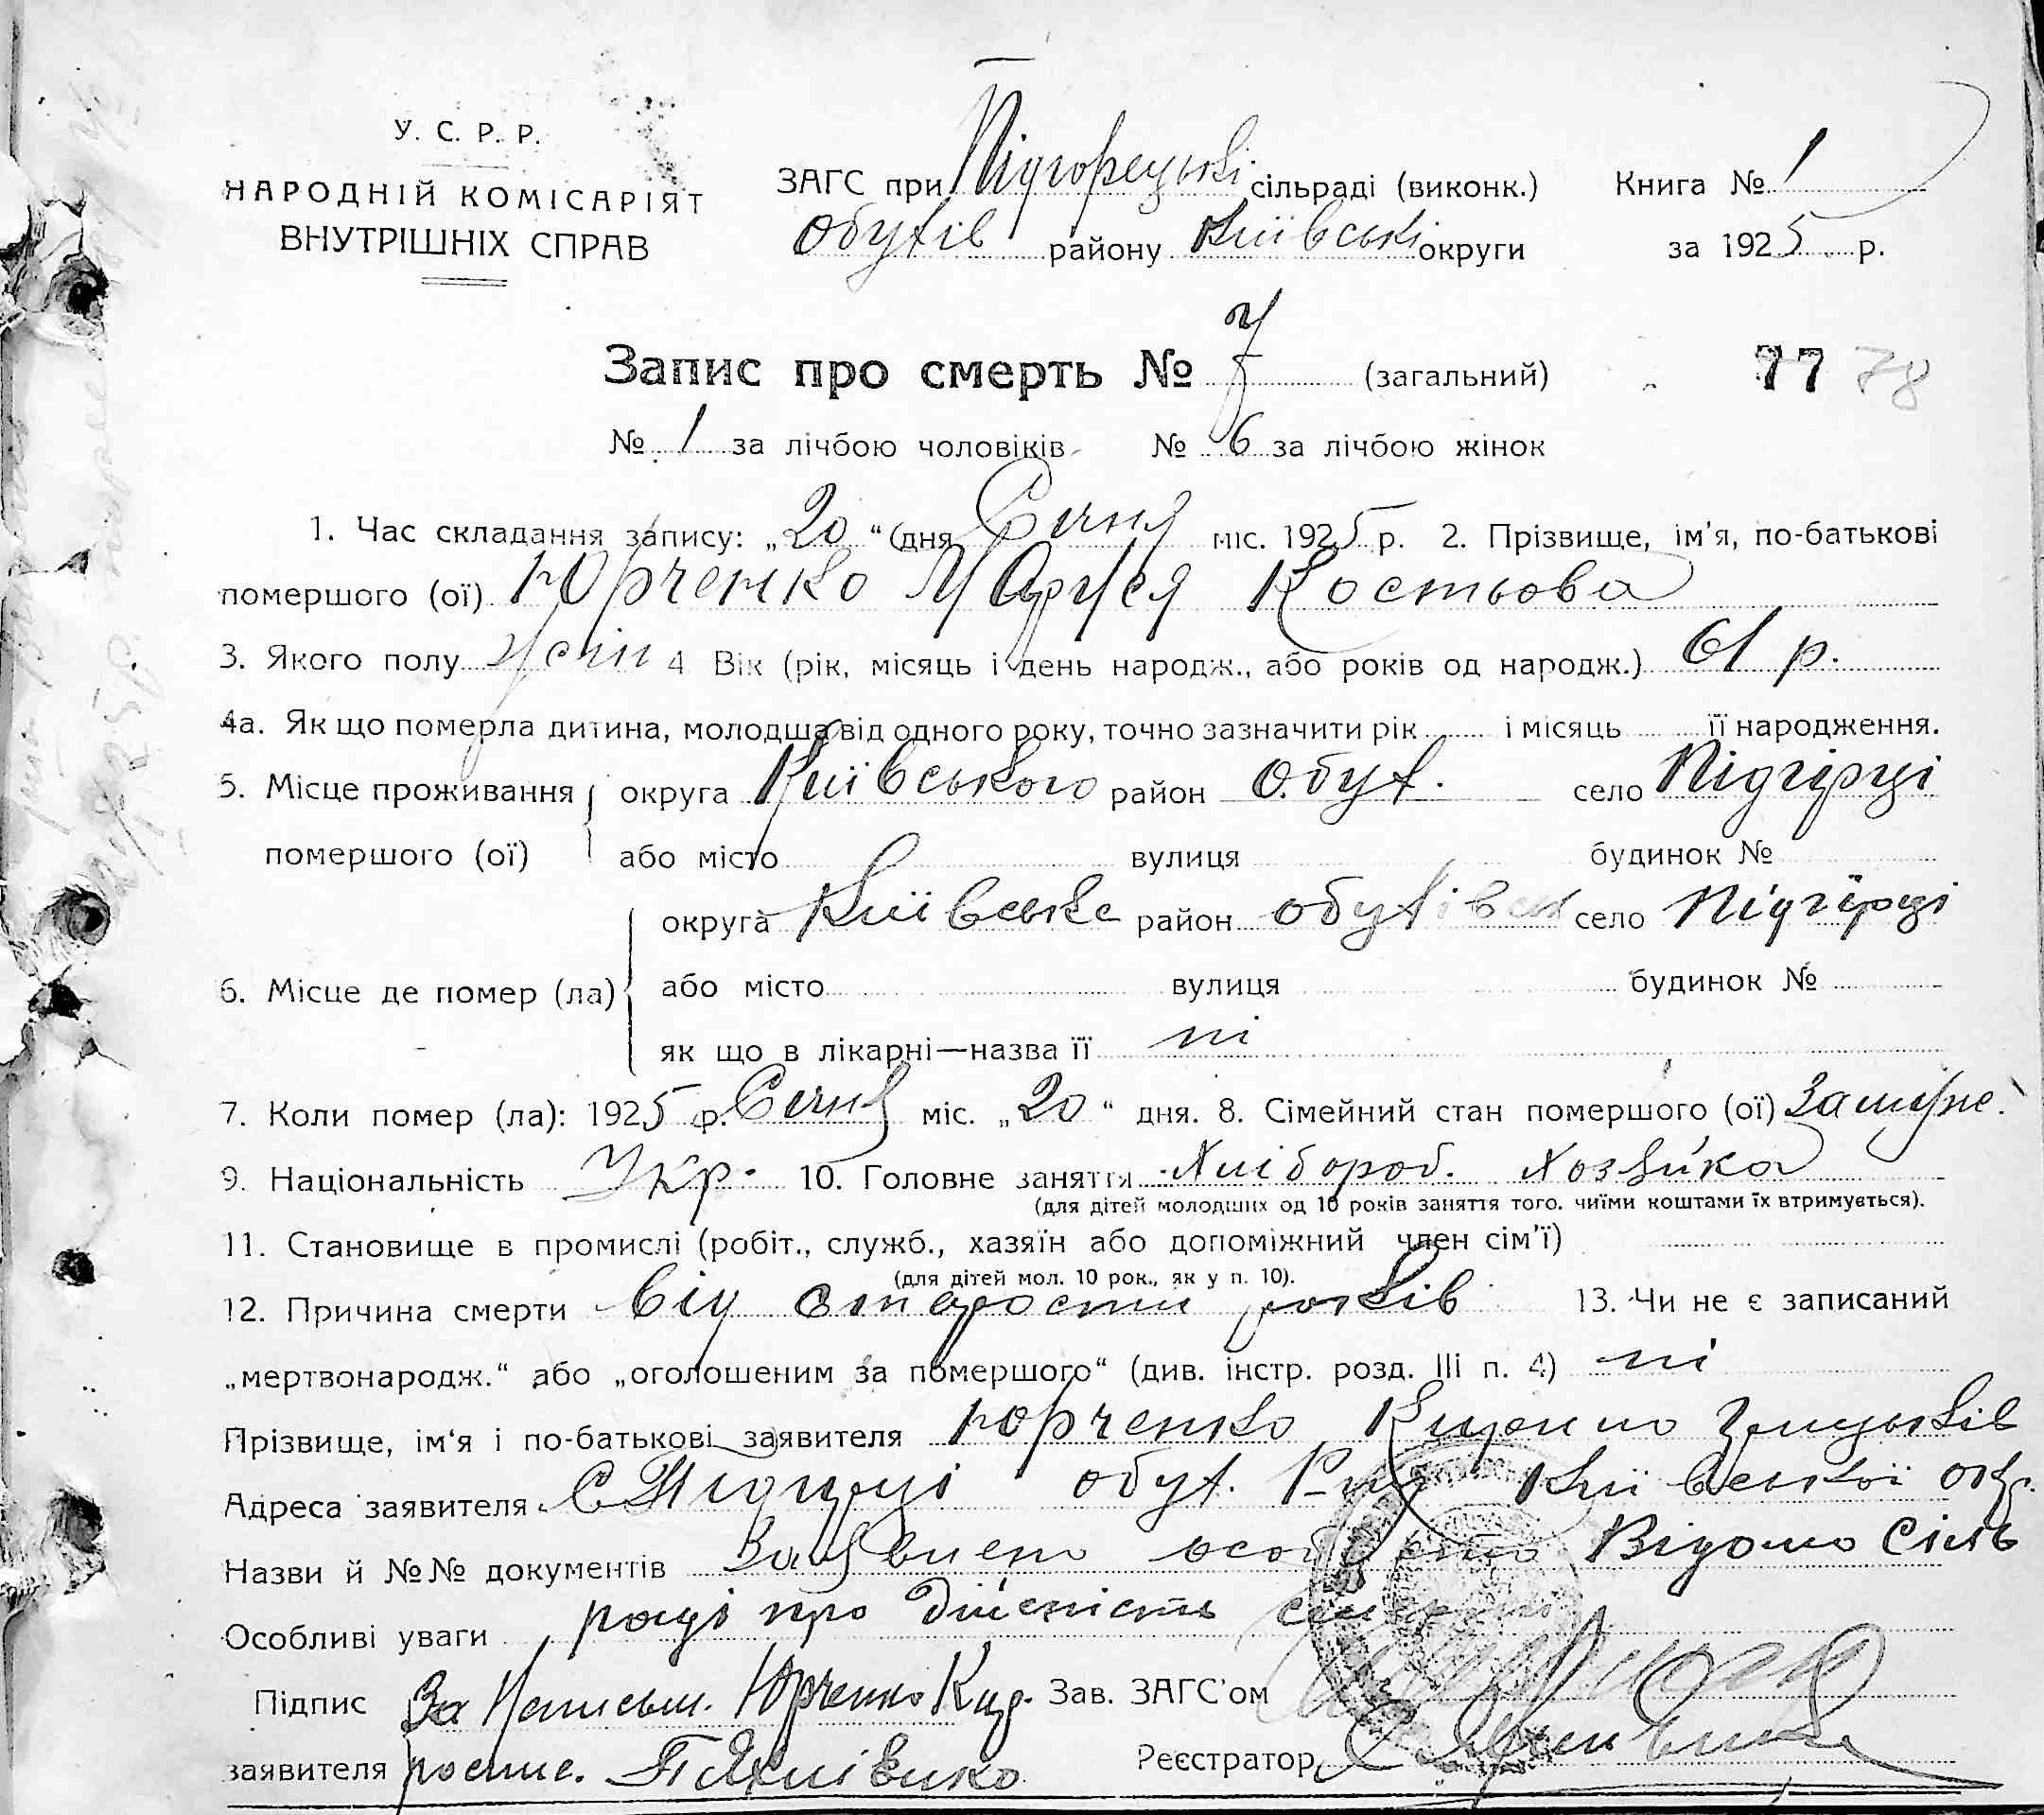 У. С. Р. Р.
НАРОДНІЙ КОМІСАРІЯТ
ВНУТРІШНІХ СПРАВ
ЗАГС при Підгорецькі сільраді (виконк.) Книга № 1
Обухів району Київські округи за 1925 р.
Запис про смерть № 7 (загальний) 77 78
№ 1 за лічбою чоловіків № 6 за лічбою жінок
1. Час складання запису: „20“ дня Січня міс. 1925 р. 2. Прізвище, ім'я, по-батькові
помершого (ої) Юрченко Маруся Костьова
3. Якого полу жін 4 Вік (рік, місяць і день народж., або років од народж.) 61 р.
4а. Як що померла дитина, молодша від одного року, точно зазначити рік і місяць її народження.
5. Місце проживання округа Київського район Обух. село Підгірці
помершого (ої) або місто вулиця будинок №
округа Київське район Обухівськ село Підгірці
6. Місце де помер (ла) або місто вулиця будинок №
як що в лікарні—назва її ні
7. Коли помер (ла): 1925 р. Січня міс. „20“ дня. 8. Сімейний стан помершого (ої) Замужн.
9. Національність Укр. 10. Головне заняття Хлібороб. Хозяйка
(для дітей молодших од 10 років заняття того. чиїми коштами їх втримується).
11. Становище в промислі (робіт., служб., хазяїн або допоміжний член сім'ї)
(для дітей мол. 10 рок., як у п. 10).
12. Причина смерти від старости років 13. Чи не є записаний
„мертвонародж.“ або „оголошеним за помершого“ (див. інстр. розд. III п. 4) ні
Прізвище, ім'я і по-батькові заявителя Юрченко Кирило Грицьків
Адреса заявителя С Підгірці Обух. Р-ну Київської окр.
Назви й №№ документів Заявлено особисто Відомо Сіль
Особливі уваги раді про дійсність смерти
Підпис За Неписьм. Юрченко Кир. Зав. ЗАГС'ом
заявителя роспис. Реєстратор